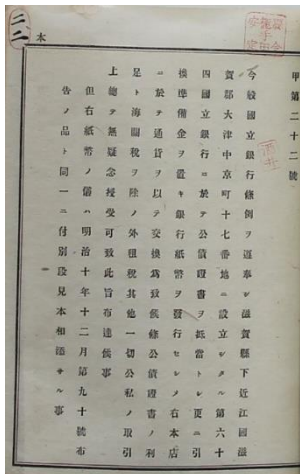 二二
本
甲第二十二號
今般國立銀行條例ヲ遵奉シ滋賀縣下近江國滋
賀郡大津中京町十七番地ニ設立シタル第六十
四國立銀行ニ於テ公債證書ヲ抵當トシ更ニ引
換準備金ヲ置キ銀行紙幣ヲ發行セシメ右本店
ニ於テ通貨ヲ以テ交換爲致候條公債證書ノ利
足ト海關稅ヲ除ノ外租稅其他一切公私ノ取引
上總テ無疑念授受可致此旨布達候事
但右紙幣ノ儀ハ明治十年十二月第九十號布
告ノ品ト同一ニ付別段見本相添サル事